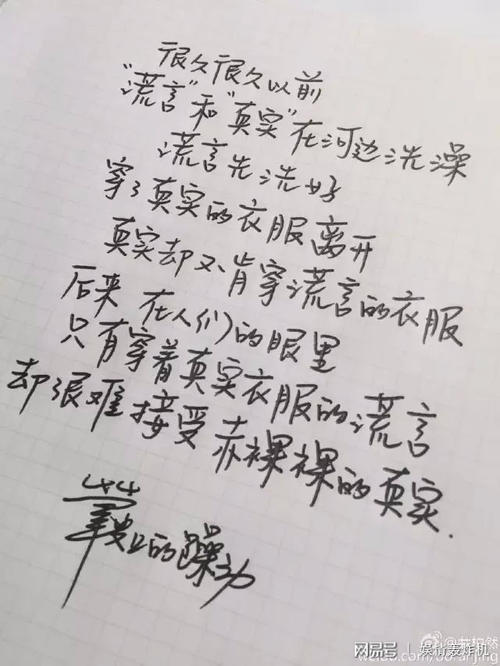 很久很久以前
"谎言"和"真实"在河边洗澡
谎言先洗好
穿了真实的衣服离开
真实却不肯穿谎言的衣服
后来 在人们的眼里
只有穿着真实衣服的谎言
却很难接受赤裸裸的真实.
的躁动
网易号
娱情轰炸机